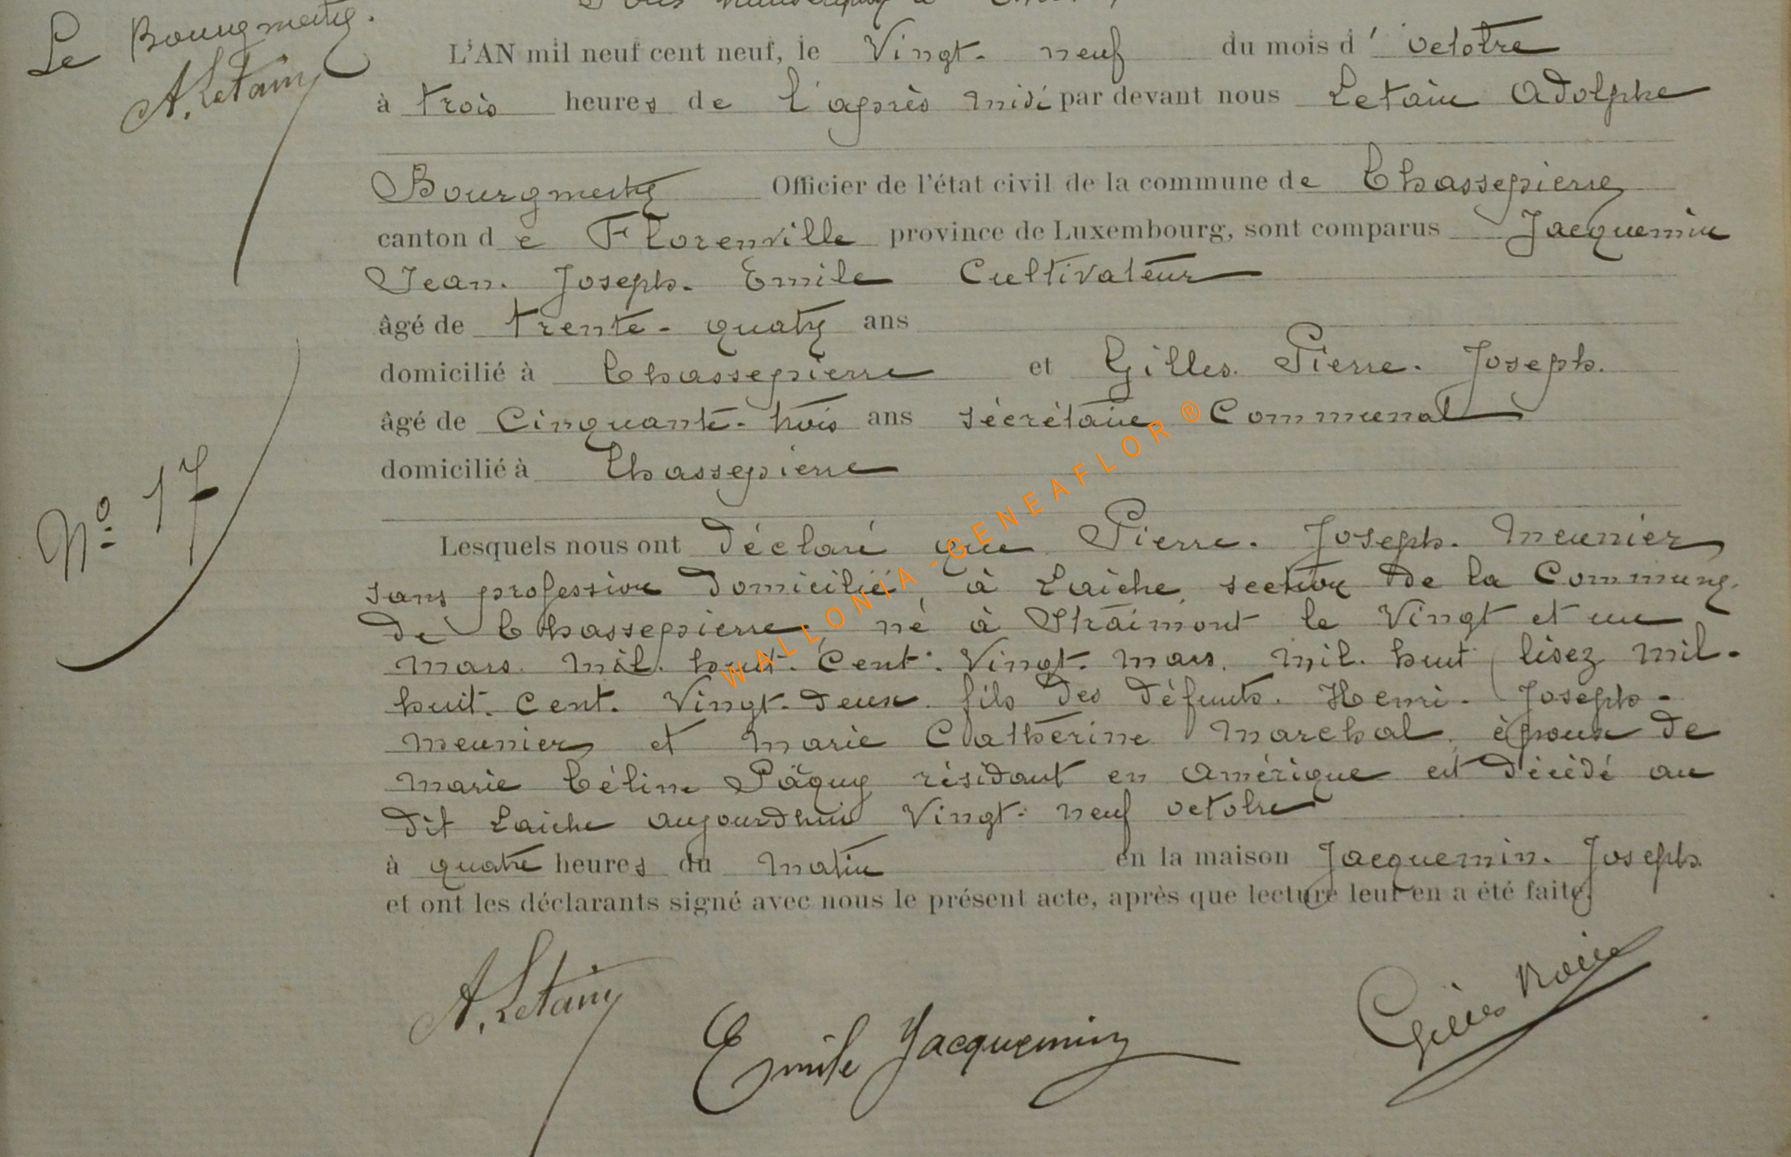 Le Bourgmestre.
A. Letain
L'AN mil neuf cent neuf, le Vingt-neuf du mois d' octobre
à trois heures de l'après midi par devant nous Letain Adolphe
Bourgmestre Officier de l'état civil de la commune de Chassepierre
canton de Florenville province de Luxembourg, sont comparus Jacquemin
Jean-Joseph-Emile Cultivateur
âgé de trente-quatre ans
domicilié à Chassepierre et Gilles Pierre-Joseph.
âgé de Cinquante-trois ans sécrétaire Communal
domicilié à Chassepierre
N° 17
Lesquels nous ont déclaré que Pierre-Joseph-Meunier
sans profession domicilié à Laiche, section de la Commune
de Chassepierre né à Straimont le Vingt et un
mars mil-huit-cent-Vingt-mars, mil-huit (lisez mil-
huit-cent-Vingt-deux fils des défunts Henri-Joseph-
Meunier et Marie Catherine Marchal, époux de
Marie Céline Pâquy résidant en Amérique est décédé au
dit Laiche aujourdhui Vingt-neuf octobre
à quatre heures du matin en la maison Jacquemin-Joseph
et ont les déclarants signé avec nous le présent acte, après que lecture leur en a été faite.
A. Letain
Emile Jacquemin
Gilles
WALLONIA - GENEAFLOR ®